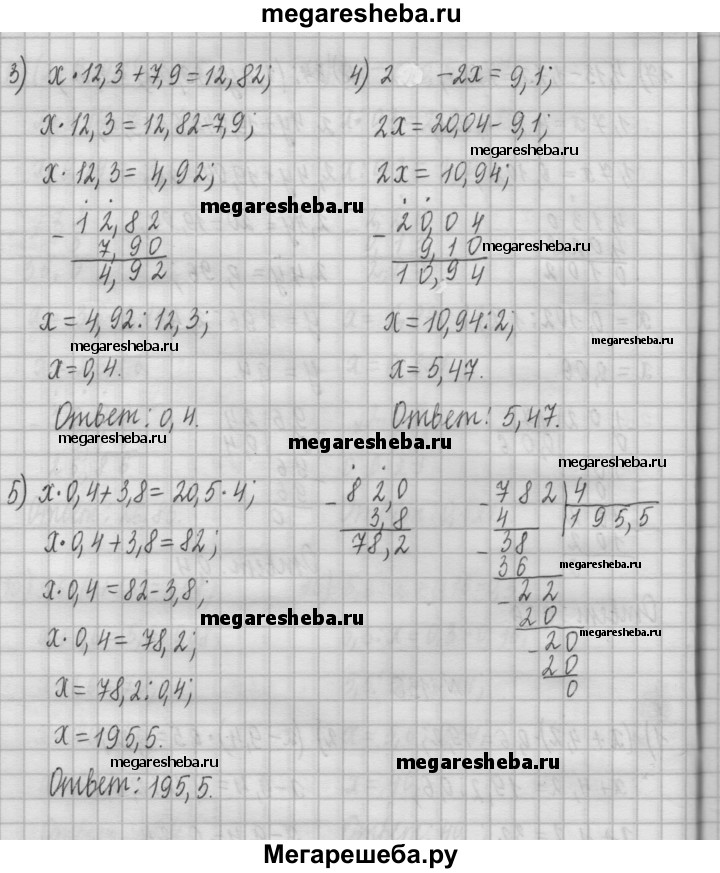 megaresheba.ru
3) x·12,3+7,9=12,82;
x·12,3=12,82-7,9;
x·12,3=4,92;
megaresheba.ru
- 12,82
7,90
4,92
x=4,92:12,3;
megaresheba.ru
x=0,4.
Ответ: 0,4.
megaresheba.ru
4) 2 -2x=9,1;
2x=20,04-9,1;
megaresheba.ru
2x=10,94;
- 20,04
9,10
megaresheba.ru
10,94
x=10,94:2;
megaresheba.ru
x=5,47.
Ответ: 5,47.
megaresheba.ru
megaresheba.ru
5) x·0,4+3,8=20,5·4;
x·0,4+3,8=82;
x·0,4=82-3,8;
megaresheba.ru
x·0,4=78,2;
x=78,2:0,4;
x=195,5.
megaresheba.ru
Ответ: 195,5.
- 82,0
3,8
78,2
- 782 4
4 195,5
- 38
36
- 22
20
- 20
megaresheba.ru
20
0
megaresheba.ru
Мегарешеба.ру